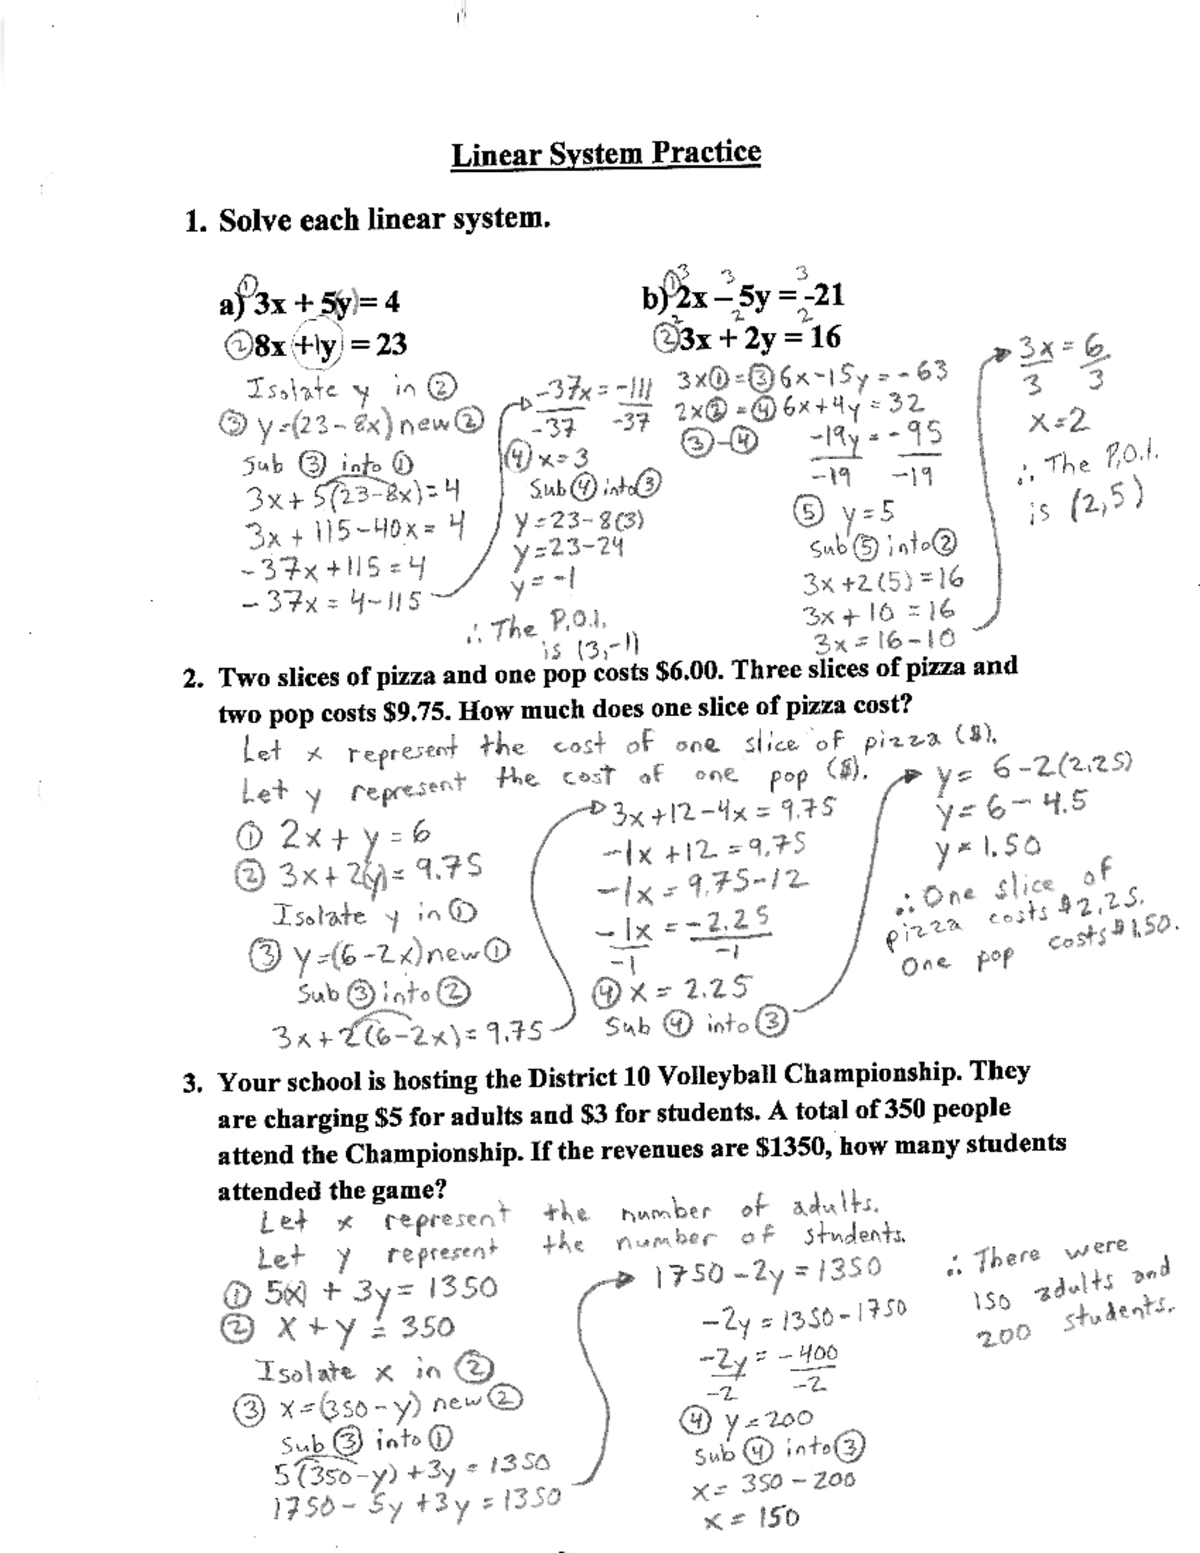 Linear System Practice
1. Solve each linear system.
a) ① 3x + 5(y) = 4
② 8x + 1y = 23
Isolate y in ②
③ y=(23-8x) new ②
Sub ③ into ①
3x+5(23-8x)=4
3x+115-40x=4
-37x+115=4
-37x=4-115
-37x=-111
-37 -37
④ x=3
Sub ④ into ③
y=23-8(3)
y=23-24
y=-1
∴ The P.O.I.
is (3,-1)
b) ① 3 2x – 3 5y = 3 -21
② 2 3x + 2 2y = 2 16
3x①=③ 6x-15y=-63
2x②=④ 6x+4y=32
③-④ -19y=-95
-19 -19
⑤ y=5
Sub ⑤ into ②
3x+2(5)=16
3x+10=16
3x=16-10
3x=6
3 3
x=2
∴ The P.O.I.
is (2,5)
2. Two slices of pizza and one pop costs $6.00. Three slices of pizza and
two pop costs $9.75. How much does one slice of pizza cost?
Let x represent the cost of one slice of pizza ($).
Let y represent the cost of one pop ($).
① 2x+y=6
② 3x+2(y)=9.75
Isolate y in ①
③ y=(6-2x) new ①
Sub ③ into ②
3x+2(6-2x)=9.75
3x+12-4x=9.75
-1x+12=9.75
-1x=9.75-12
-1x=-2.25
-1 -1
④ x=2.25
Sub ④ into ③
y=6-2(2.25)
y=6-4.5
y=1.50
∴ One slice of
pizza costs $2.25.
One pop costs $1.50.
3. Your school is hosting the District 10 Volleyball Championship. They
are charging $5 for adults and $3 for students. A total of 350 people
attend the Championship. If the revenues are $1350, how many students
attended the game?
Let x represent the number of adults.
Let y represent the number of students.
① 5(x)+3y=1350
② x+y=350
Isolate x in ②
③ x=(350-y) new ②
Sub ③ into ①
5(350-y)+3y=1350
1750-5y+3y=1350
1750-2y=1350
-2y=1350-1750
-2y=-400
-2 -2
④ y=200
Sub ④ into ③
x=350-200
x=150
∴ There were
150 adults and
200 students.